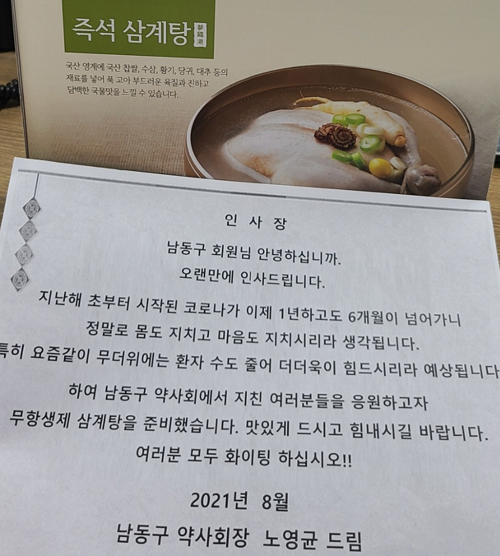 즉석 삼계탕
국산 영계에 국산 찹쌀, 수삼, 황기, 당귀, 대추 등의
재료를 넣어 푹 고아 부드러운 육질과 진하고
담백한 국물맛을 느낄 수 있습니다.
인 사 장
남동구 회원님 안녕하십니까.
오랜만에 인사드립니다.
지난해 초부터 시작된 코로나가 이제 1년하고도 6개월이 넘어가니
정말로 몸도 지치고 마음도 지치시리라 생각됩니다.
특히 요즘같이 무더위에는 환자 수도 줄어 더더욱이 힘드시리라 예상됩니다
하여 남동구 약사회에서 지친 여러분들을 응원하고자
무항생제 삼계탕을 준비했습니다. 맛있게 드시고 힘내시길 바랍니다.
여러분 모두 화이팅 하십시오!!
2021년 8월
남동구 약사회장 노영균 드림